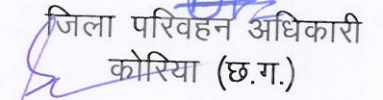 जिला परिवहन अधिकारी
कोरिया (छ.ग.)